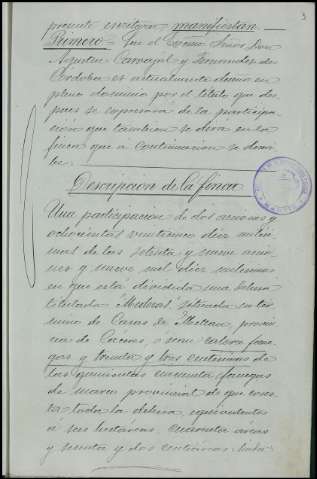 3
presente escritura manifiestan
Primero = Que el Excmo Señor Don
Agustin Carvajal y Fernandez de
Cordoba es actualmente dueño en
pleno dominio por el titulo que des
pues se expresará de la participa-
ción que tambien se dirá en la
finca que a continuacion se descri
be:
Descripcion de la finca
Una participacion de dos acciones y
ochocientas veintiuna diez milé
simas de las setenta y nueve accio
nes y nueve mil diez milesimas
en que está dividida una dehesa
titulada situada en tér
mino de Casas de Millan, provin
cia de Cáceres, ó sean catorce fane
gas y treinta y tres centesimas de
las quinientas cincuenta fanegas
de marco provincial de que cons
ta toda la dehesa, equivalentes
á hectareas, cuarenta areas
y y dos centiareas.